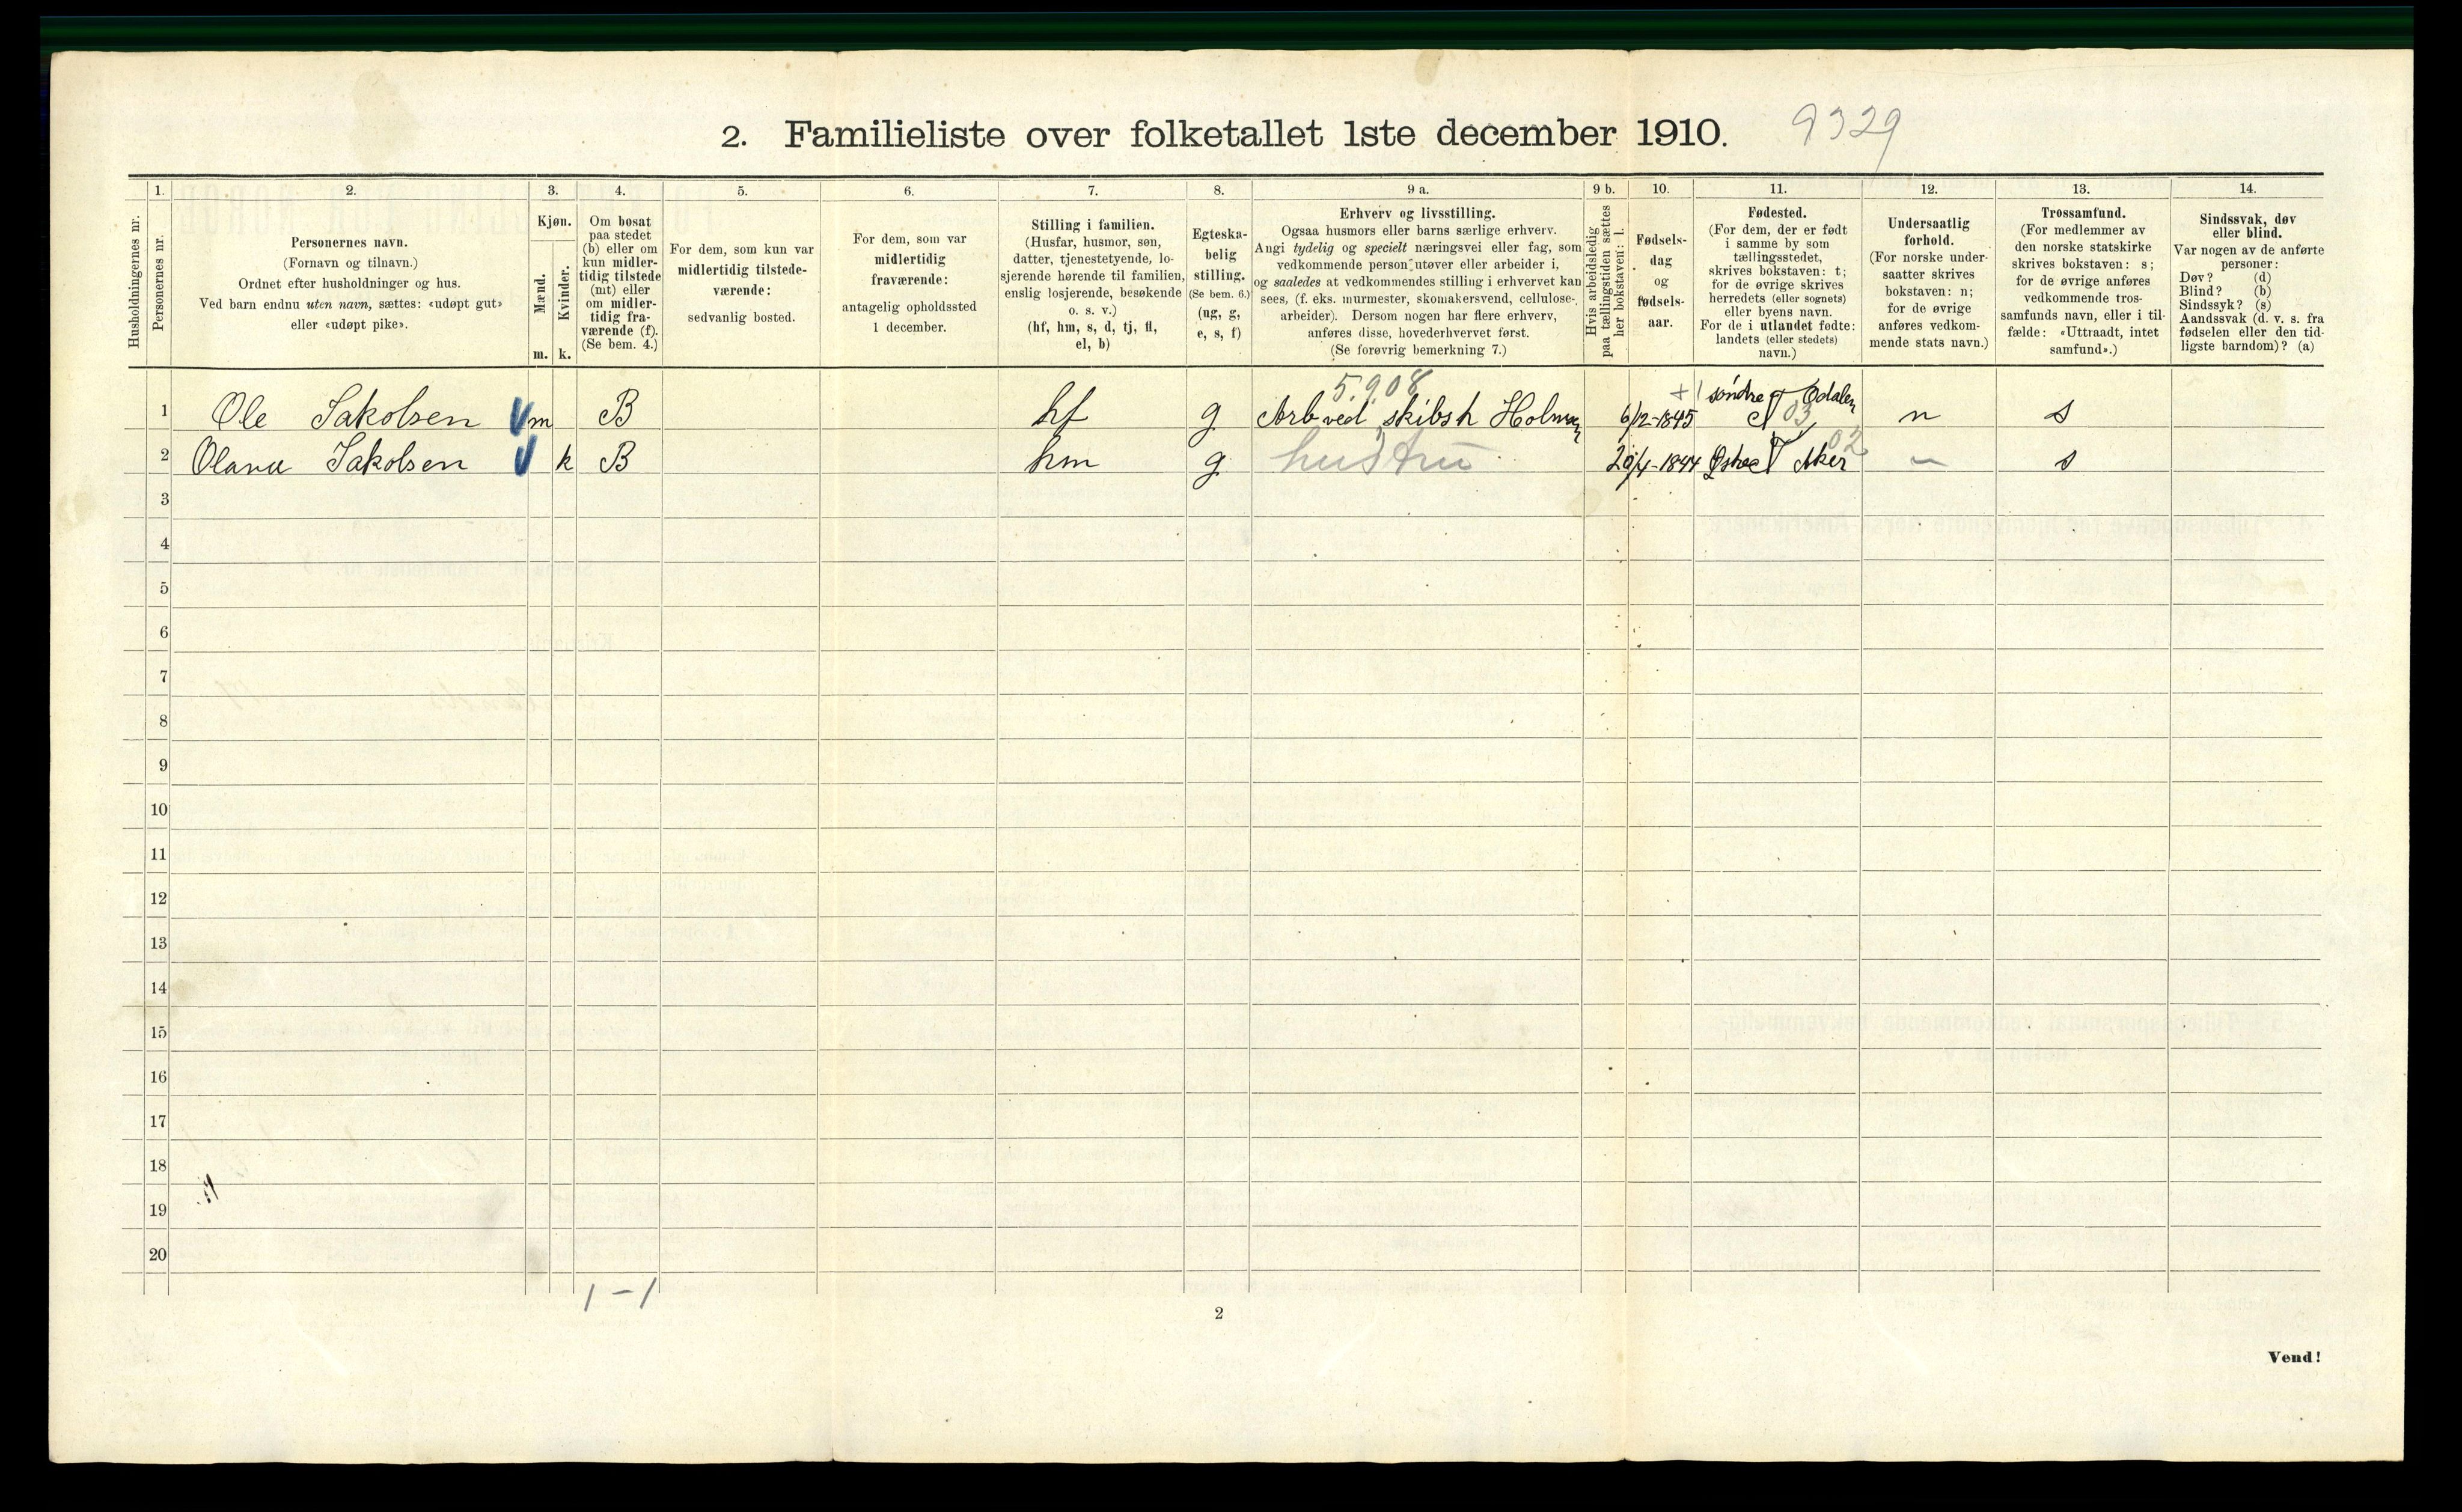 2. Familieliste over folketallet 1ste december 1910. 9329
1. 2. 3. 4. 5. 6. 7. 8. 9 a. 9 b. 10. 11. 12. 13. 14.
Husholdningernes nr.
Personernes nr.
Personernes navn.
(Fornavn og tilnavn.)
Ordnet efter husholdninger og hus.
Ved barn endnu uten navn, sættes: «udøpt gut»
eller «udøpt pike».
Kjøn.
Mænd.
Kvinder.
m. k.
Om bosat
paa stedet
(b) eller om
kun midler-
tidig tilstede
(mt) eller
om midler-
tidig fra-
værende (f).
(Se bem. 4.)
For dem, som kun var
midlertidig tilstede-
værende:
sedvanlig bosted.
For dem, som var
midlertidig
fraværende:
antagelig opholdssted
1 december.
Stilling i familien.
(Husfar, husmor, søn,
datter, tjenestetyende, lo-
sjerende hørende til familien,
enslig losjerende, besøkende
o. s. v.)
(hf, hm, s, d, tj, fl,
el, b)
Egteska-
belig
stilling.
(Se bem. 6.)
(ug, g,
e, s, f)
Erhverv og livsstilling.
Ogsaa husmors eller barns særlige erhverv.
Angi tydelig og specielt næringsvei eller fag, som
vedkommende person utøver eller arbeider i,
og saaledes at vedkommendes stilling i erhvervet kan
sees, (f. eks. murmester, skomakersvend, cellulose-
arbeider). Dersom nogen har flere erhverv,
anføres disse, hovederhvervet først.
(Se forøvrig bemerkning 7.)
Hvis arbeidsledig
paa tællingstiden sættes
her bokstaven: l.
Fødsels-
dag
og
fødsels-
aar.
Fødested.
(For dem, der er født
i samme by som
tællingsstedet,
skrives bokstaven: t;
for de øvrige skrives
herredets (eller sognets)
eller byens navn.
For de i utlandet fødte:
landets (eller stedets)
navn.)
Undersaatlig
forhold.
(For norske under-
saatter skrives
bokstaven: n;
for de øvrige
anføres vedkom-
mende stats navn.)
Trossamfund.
(For medlemmer av
den norske statskirke
skrives bokstaven: s;
for de øvrige anføres
vedkommende tros-
samfunds navn, eller i til-
fælde: «Uttraadt, intet
samfund».)
Sindssvak, døv
eller blind.
Var nogen av de anførte
personer:
Døv? (d)
Blind? (b)
Sindssyk? (s)
Aandssvak (d. v. s. fra
fødselen eller den tid-
ligste barndom)? (a)
5.9.08
søndre Odalen
1 Ole Jakobsen m B hf g Arb ved skibsh Holmen 6/12-1845 03 n s
2 Olava Jakobsen k B hm g hustru 1844 Østre Aker 02 — s
3
4
5
6
7
8
9
10
11
12
13
14
15
16
17
18
19
20
1 - 1
2
Vend!